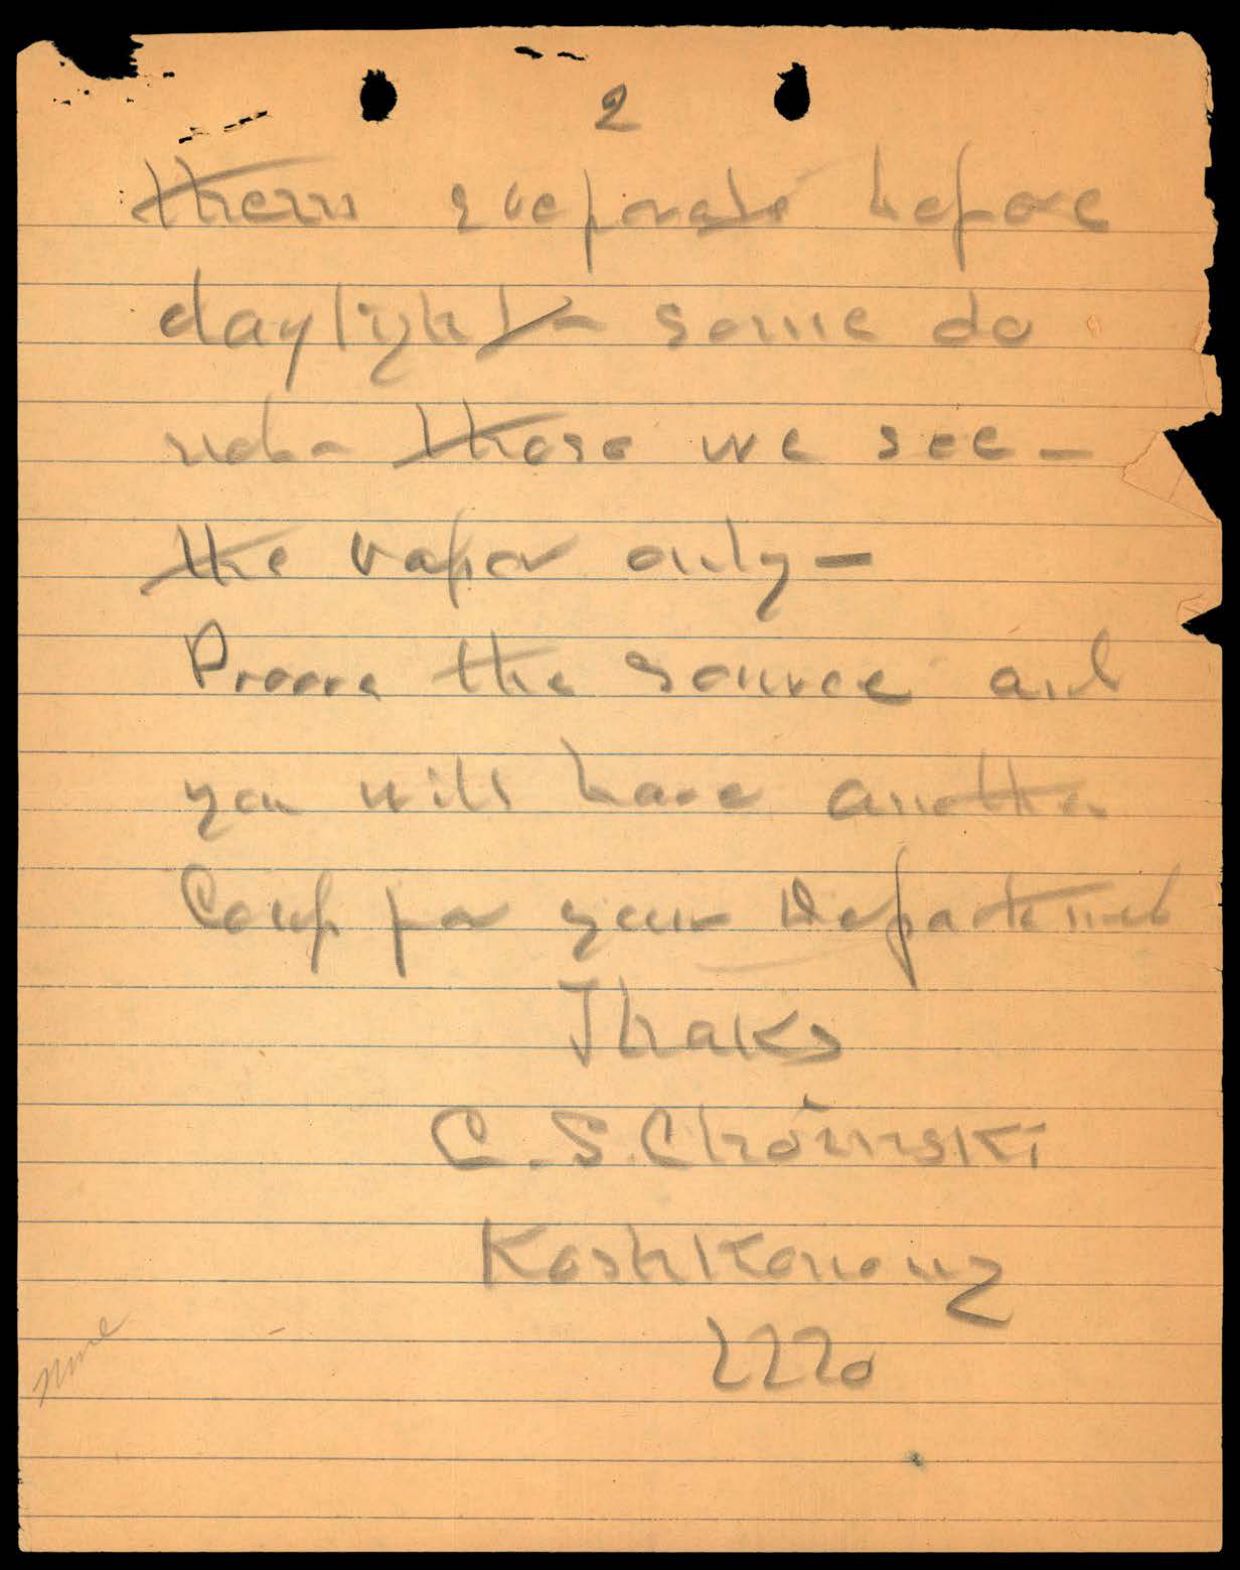 2
them evaporate before
daylight - some do
not - those we see -
the vapor only -
Proove the source and
you will have another
Coup for your Department
Thaks
C. S. Choinski
Koshkonong
Mo